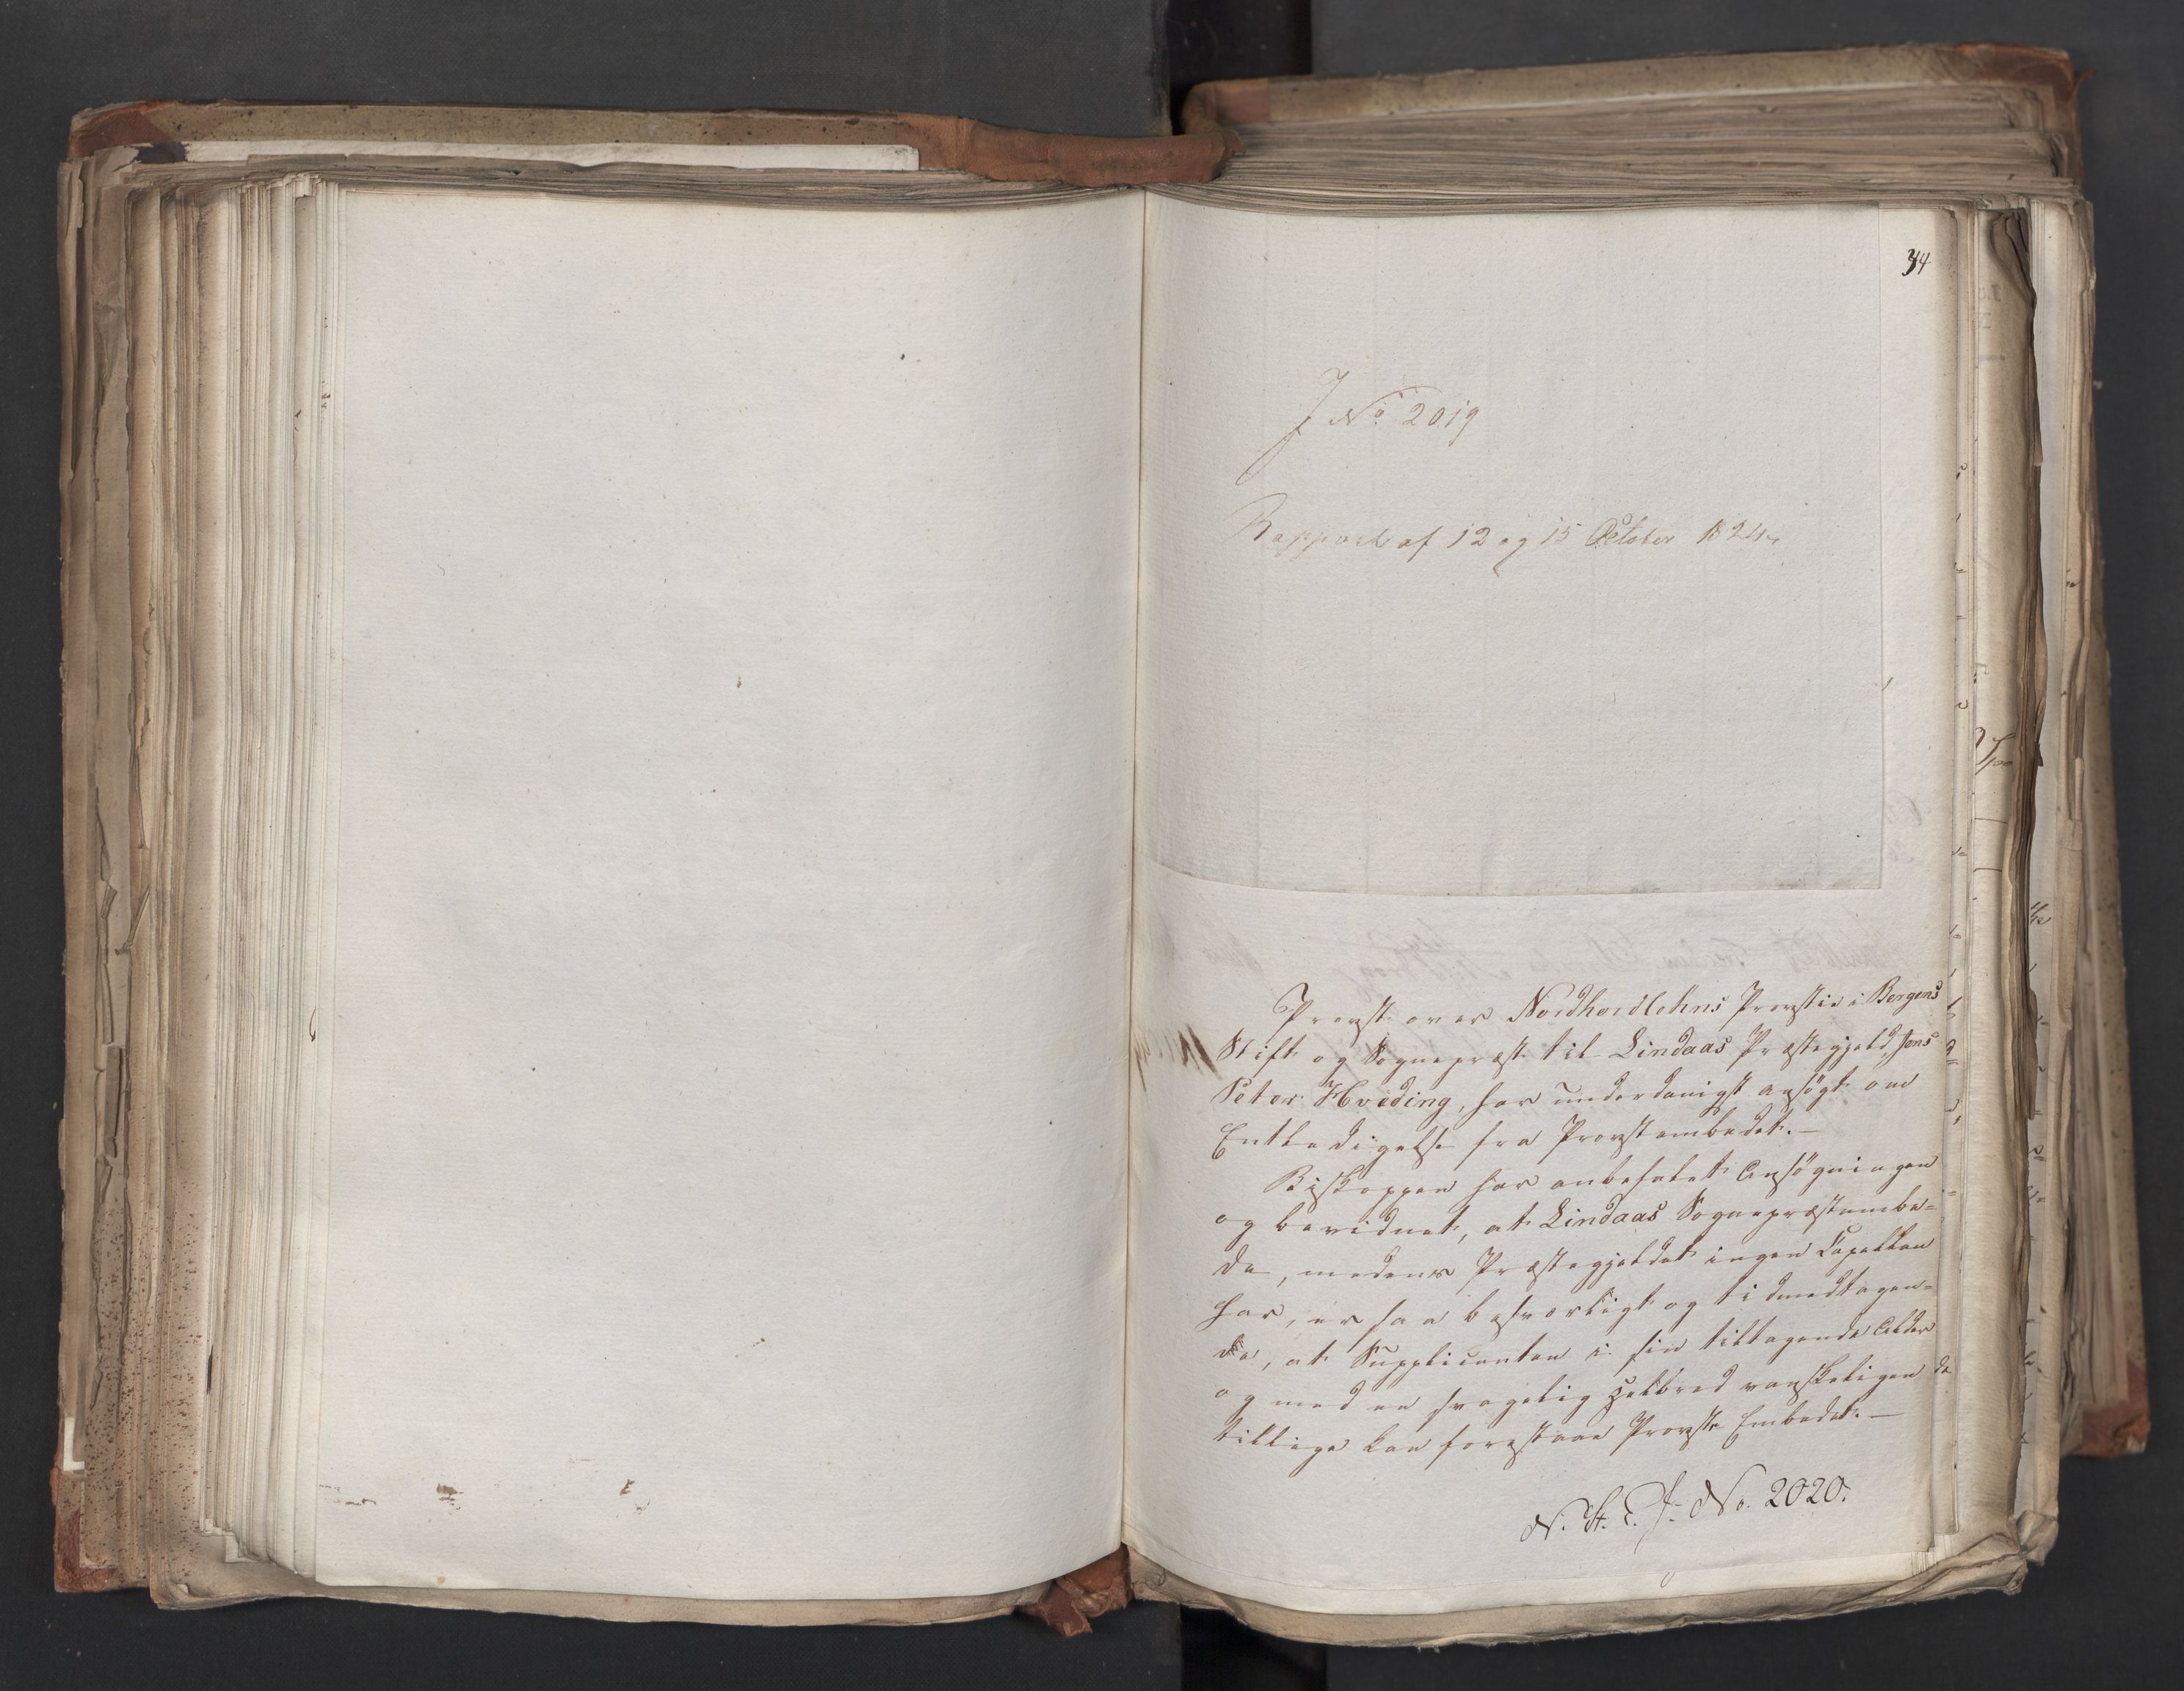 34
J No 2019
Rapport af 12 og 15 October 1824.
Provst over Nordhordlehns Provstie i Bergens
Stift og Sognepræst til Lindaas Præstegjeld, Jens
Peter Hveding, har underdanigst ansøgt om
Entledigelse fra Provstembedet. —
Biskoppen har anbefalet Ansøgningen
og bevidnet, at Lindaas Sognepræstembe=
de, medens Præstegjeldet ingen Capellan
har, er saa besværligt og tidmedtagen=
de, at Supplicanten i sin tiltagende Alder
og med en svagelig Helbred vanskeligen
tillige kan forestaae Provste Embedet. —
N. St. E. J. No. 2020.